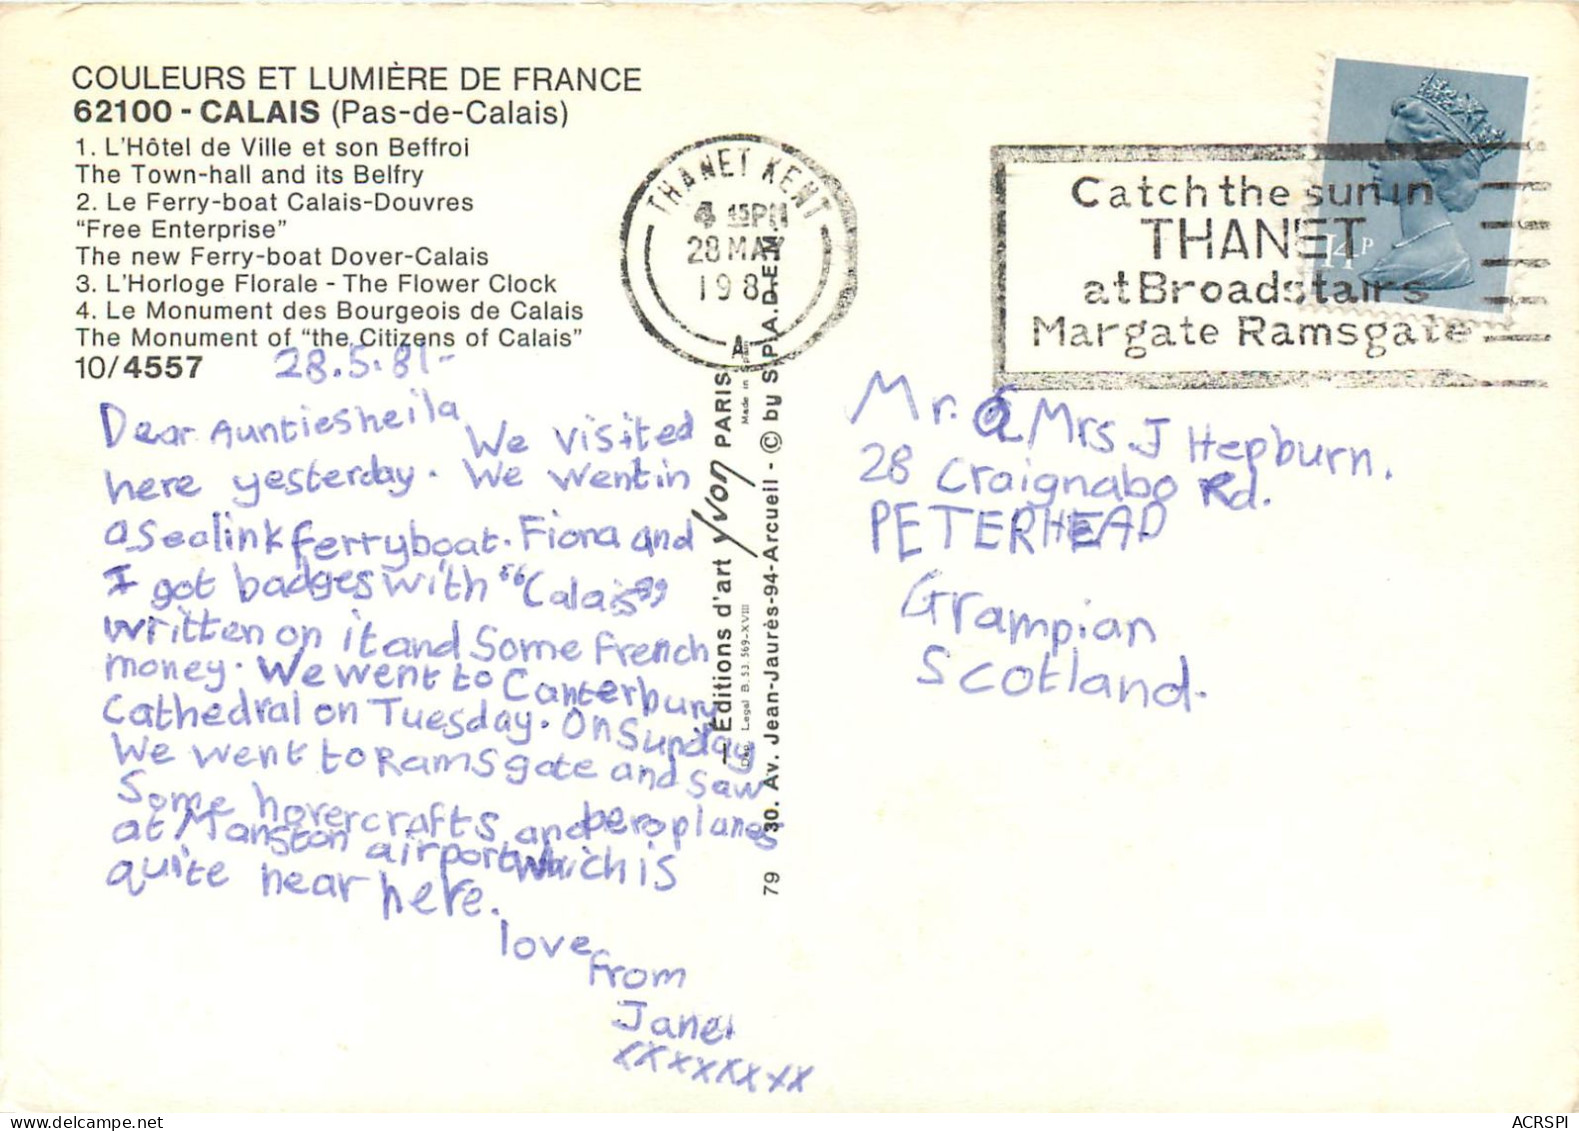 COULEURS ET LUMIÈRE DE FRANCE
62100 - CALAIS (Pas-de-Calais)
1. L'Hôtel de Ville et son Beffroi
The Town-hall and its Belfry
2. Le Ferry-boat Calais-Douvres
"Free Enterprise"
The new Ferry-boat Dover-Calais
3. L'Horloge Florale - The Flower Clock
4. Le Monument des Bourgeois de Calais
The Monument of "the Citizens of Calais"
10/4557
28.5.81-
Dear Auntiesheila
We visited
here yesterday. We went in
a Sealink ferryboat. Fiona and
I got badges with "Calais"
written on it and Some french
money. We went to Canterbury
Cathedral on Tuesday. On Sunday
We went to Ramsgate and saw
Some hovercrafts and aeroplanes
at Manston airport which is
quite near here.
love
from
Janet
xxxxxxxx
Editions d'art Yvon PARIS
Made in Spain
Dép. Legal B. 53. 569-XVIII
79 30. Av. Jean-Jaurès-94-Arcueil - © by S.P.A.D.E.M.
THANET KENT
4 45PM
28 MAY
198
A
Catch the sun in
THANET
at Broadstairs
Margate Ramsgate
14P
Mr. & Mrs J Hepburn.
28 Craignabo Rd.
PETERHEAD
Grampian
Scotland.
ACRSPI